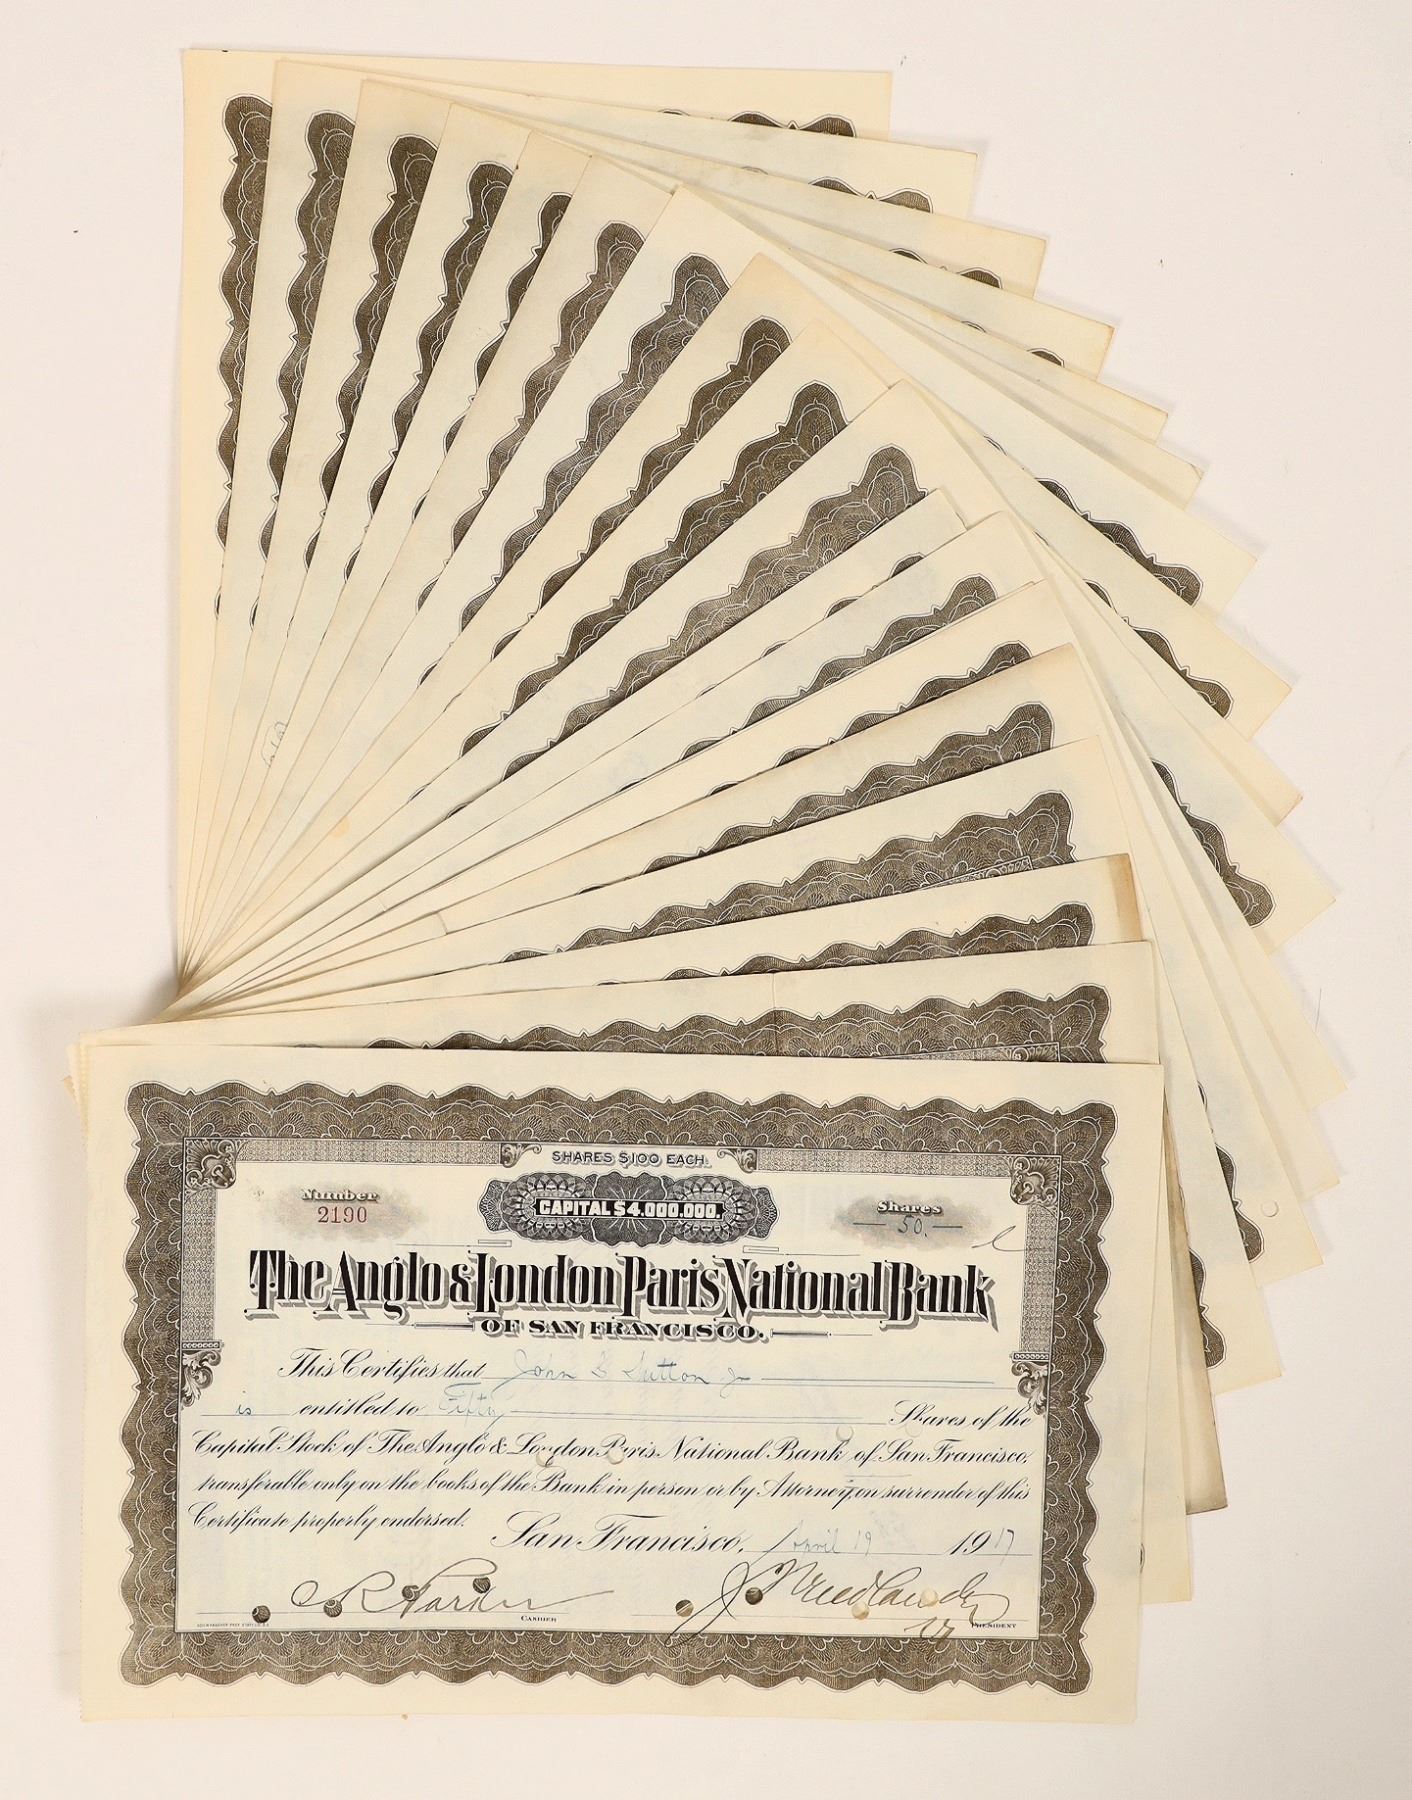 SHARES $100 EACH.
Number
2190
CAPITAL $4,000,000.
Shares
50.
The Anglo & London Paris National Bank
OF SAN FRANCISCO.
This Certifies that John S Sutton Jr
is entitled to Fifty Shares of the
Capital Stock of The Anglo & London Paris National Bank of San Francisco,
transferable only on the books of the Bank in person or by Attorney, on surrender of this
Certificate properly endorsed.
San Francisco, April 19 1917
C R Parker
CASHIER
PRESIDENT